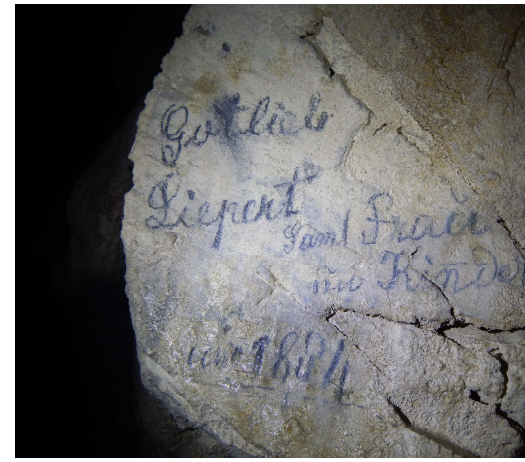 Gottlieb
Liepert
samt Frau
Kinde
1884